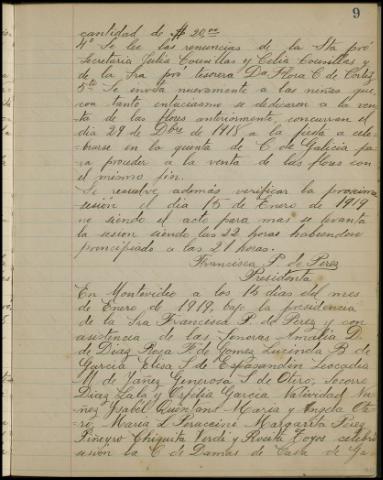 9
cantidad de $ 20.00
4º Se lee las renuncias de la Sta pró
Secretaria Julia Cousillas y Celia Cousillas y
de la Sra pró tesorera Dª Flora C de Cortés
5º Se envía nuevamente a las niñas que,
con tanto entusiasmo se dedicaron a la ven
ta de las flores anteriormente, concurran el
dia 29 de Dbre de 1918 a la fiesta a cele
brarse en la quinta de C de Galicia pa
ra proceder a la venta de las flores con
el mismo fin.
Se resuelve además verificar la proxima
sesión el dia 15 de Enero de 1919
no siendo el acto para mas se levanta
la sesion siendo las 22 horas habiendose
principiado a las 21 horas.
Francisca P. de Perez
Presidenta
En Montevideo a los 15 dias del mes
de Enero de 1919, bajo la presidencia
de la Sra Francisca P. de Perez y con
asistencia de las Señoras Amalia D.
de Diaz Rosa F. de Gomez Lucinda B. de
Garcia Elisa S. de Espasandin Leocadia
M. de Yañez Generosa S. de Otero, Socorro
Diaz Lala y Ofelia Garcia Natividad Nu
ñez Isabel Quintans Maria y Angela Ote
ro, Maria L Peraceino Margarita Perez
Piñeyro Chiquita Verde y Rosita Toyos celebró
sesión la C de Damas de Casa de Ga